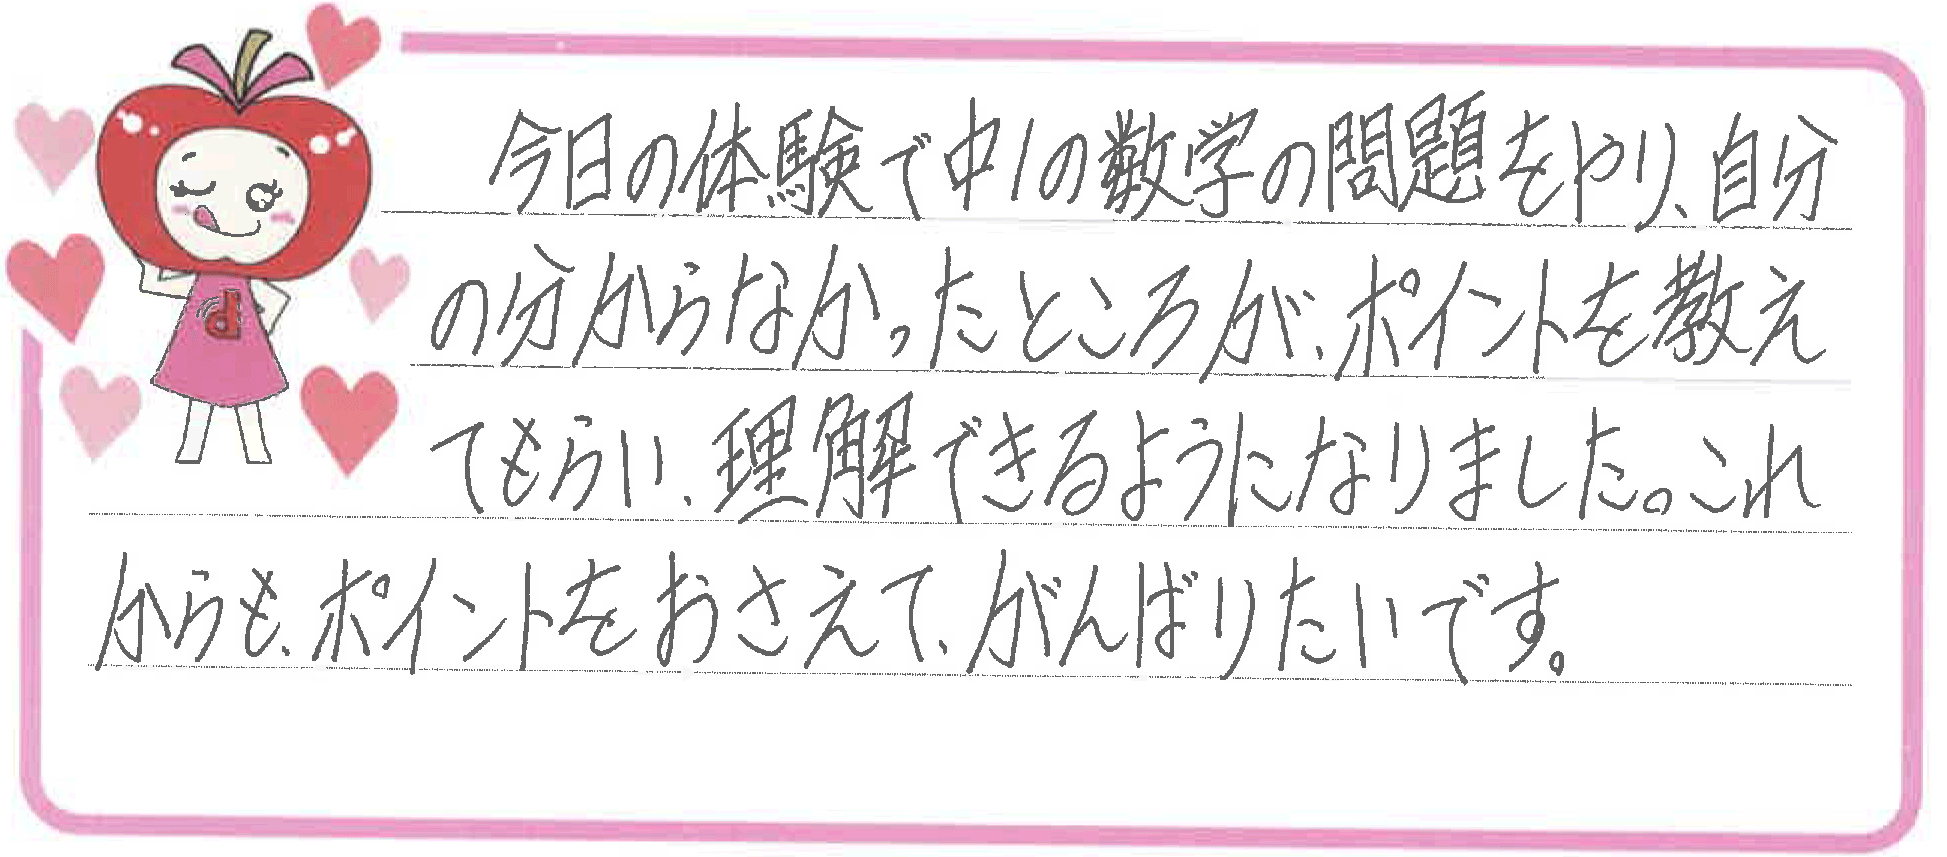 今日の体験で中1の数学の問題をやり、自分
の分からなかったところが、ポイントを教え
てもらい、理解できるようになりました。これ
からも、ポイントをおさえて、がんばりたいです。
d